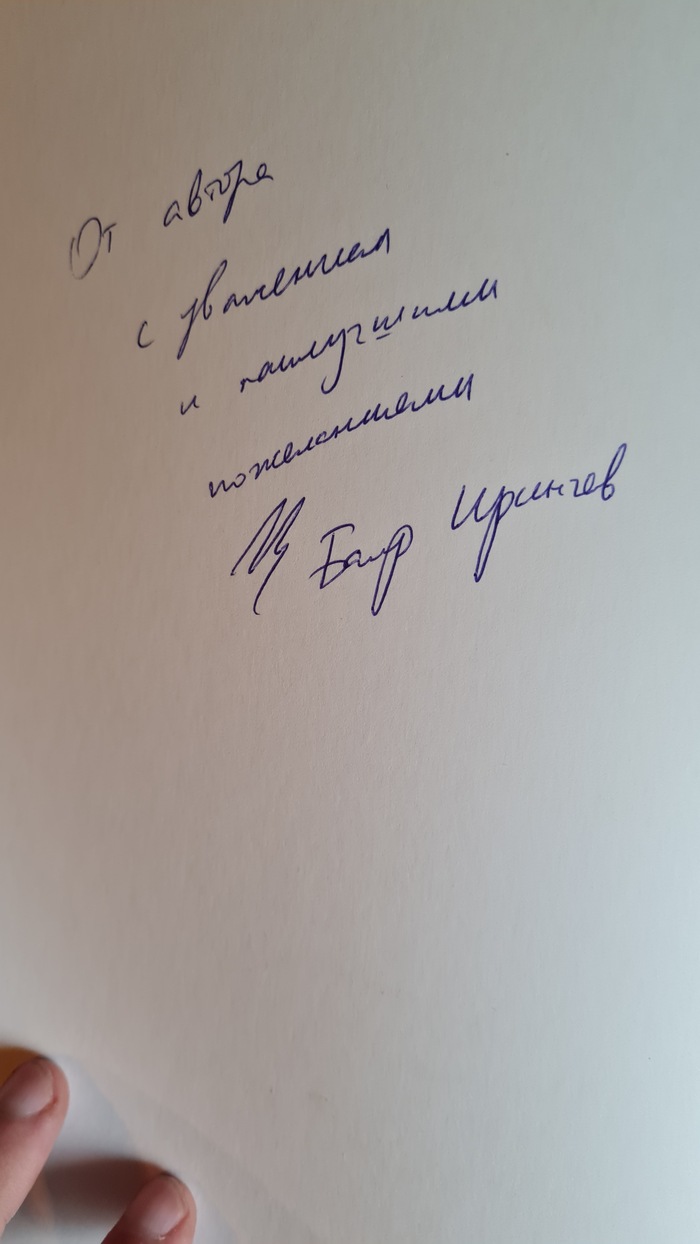 От автора
с уважением
и наилучшими
пожеланиями
Баир Иринчеев